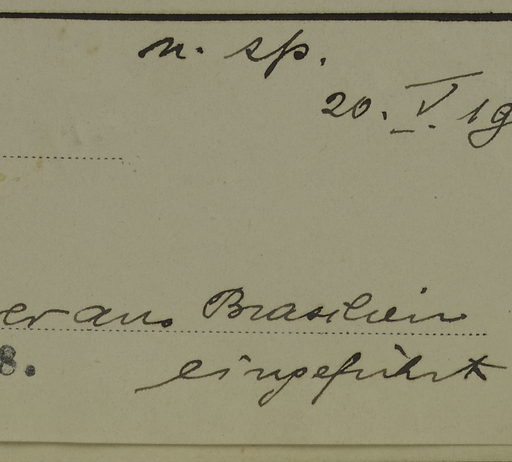 n. sp.
20. V. 19
er aus Brasilien
8. eingeführt